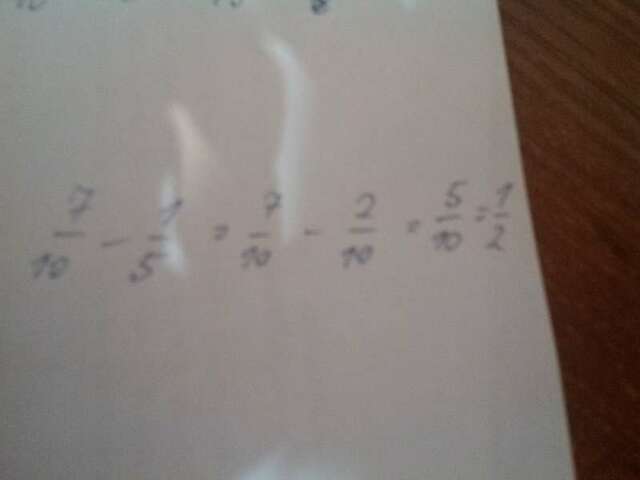 7/10 - 1/5 = 7/10 - 2/10 = 5/10 = 1/2